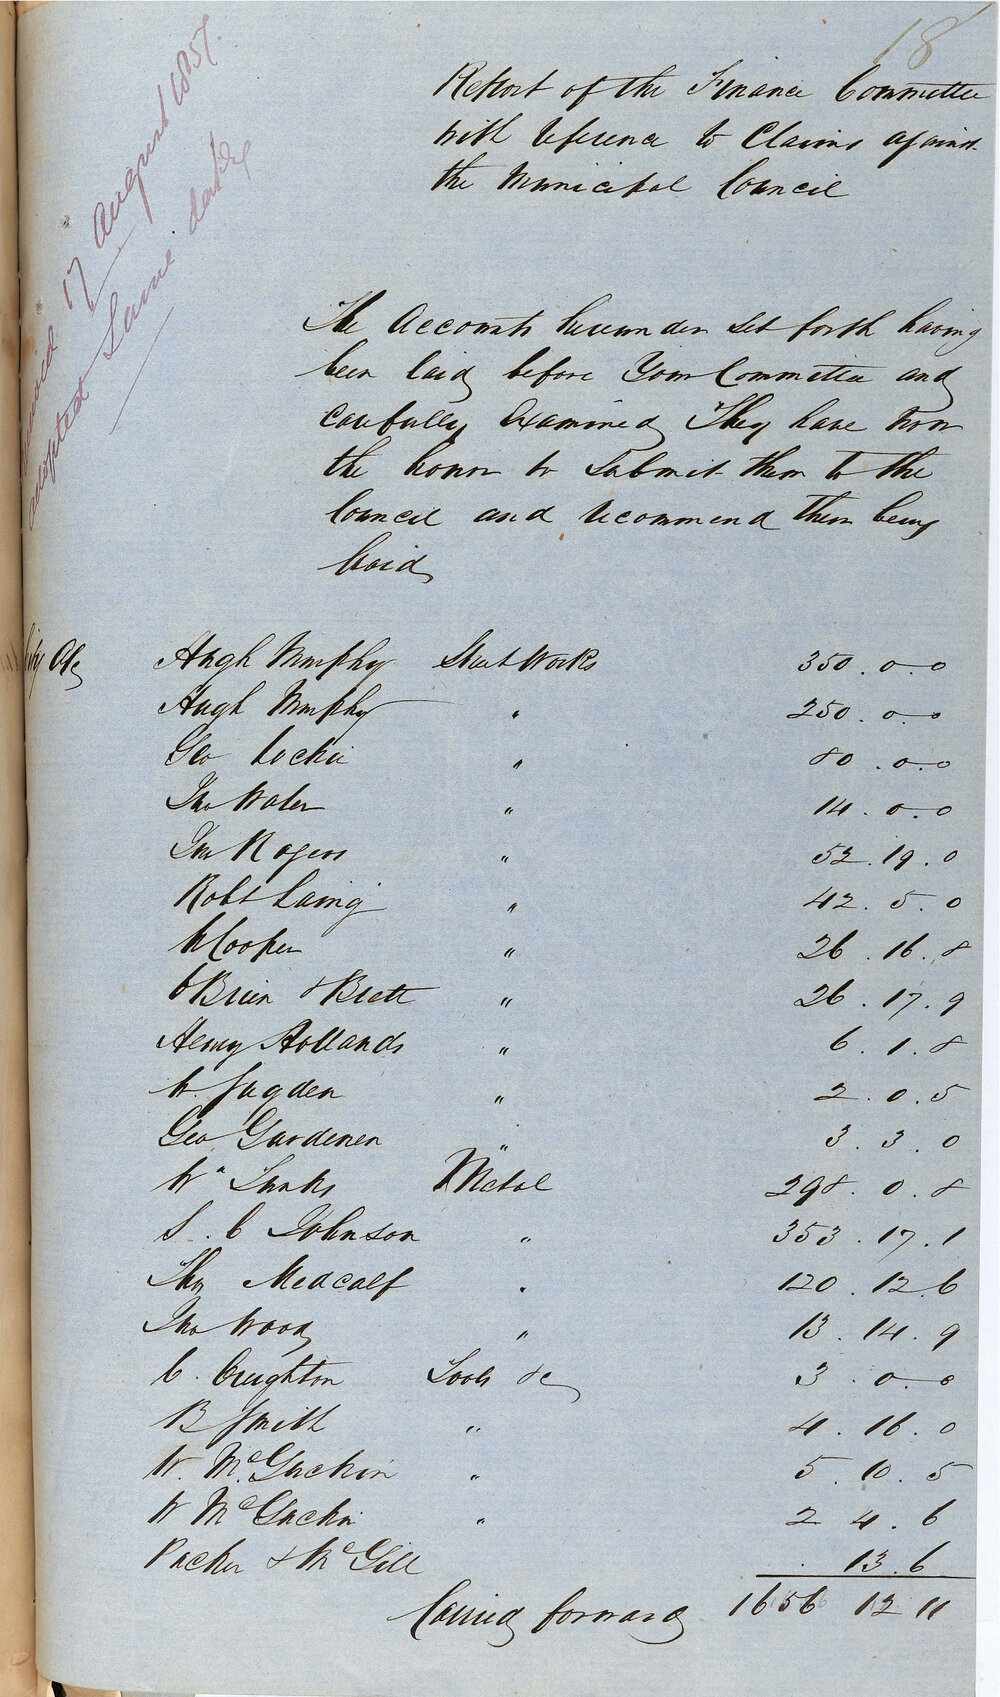 18
Report of the Finance Committee
with reference to Claims against
the Municipal Council
received 17 August 1857
adopted Same date
The Accounts hereunder set forth having
been laid before Your Committee and
carefully examined They have now
the honor to Submit them to the
Council and recommend them being
Paid
City Ac
Hugh Murphy Street Works 350 . 0 . 0
Hugh Murphy " 250 . 0 . 0
Geo Lockie " 80 . 0 . 0
Jno Water " 14 . 0 . 0
Jno Rogers " 52 . 19 . 0
Robt Laing " 42 . 5 . 0
W Cooper " 26 . 16 . 8
O'Brien & Brett " 26 . 17 . 9
Henry Hollands " 6 . 1 . 8
W. Jugden " 2 . 0 . 5
Geo Gardener " 3 . 3 . 0
Wm Metal 298 . 0 . 8
S . C Johnson " 353 . 17 . 1
Thos Medcalf " 120 . 12 6
Jno Wood " 13 . 14 . 9
C. Creighton Tools &c 3 . 0 . 0
B Smith " 4 . 16 . 0
W. McGuchin " 5 . 10 . 5
W McGuchin " 2 4 . 6
Packer & McGill . 13 . 6
Carried forward 1656 12 11